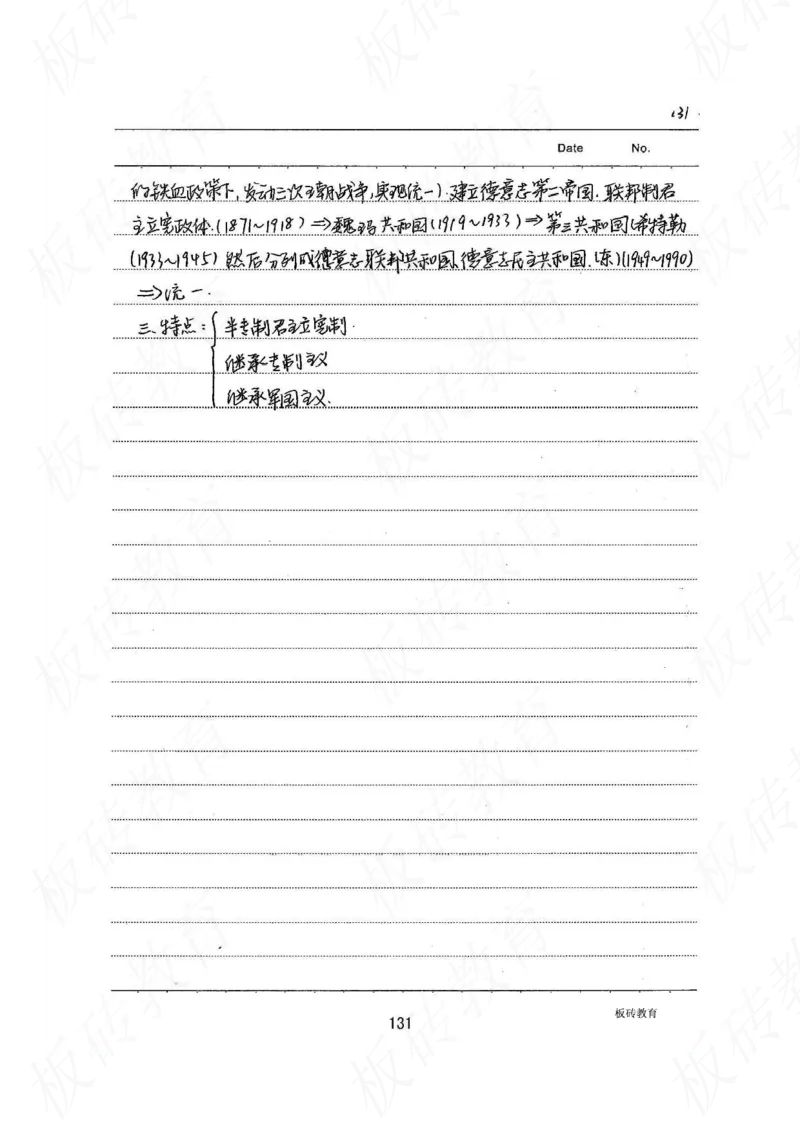 131
Date No.
的铁血政策下,发动三次王朝战争,实现统一)建立德意志第二帝国.联邦制君
主立宪政体.(1871~1918)⇒魏玛共和国(1919~1933)⇒第三共和国(希特勒
(1933~1945)然后分列成德意志联邦共和国、德意志民主共和国.(东)(1949~1990)
⇒统一.
三、特点:{半专制君主立宪制.
继承专制主义
继承军国主义.
131
板砖教育